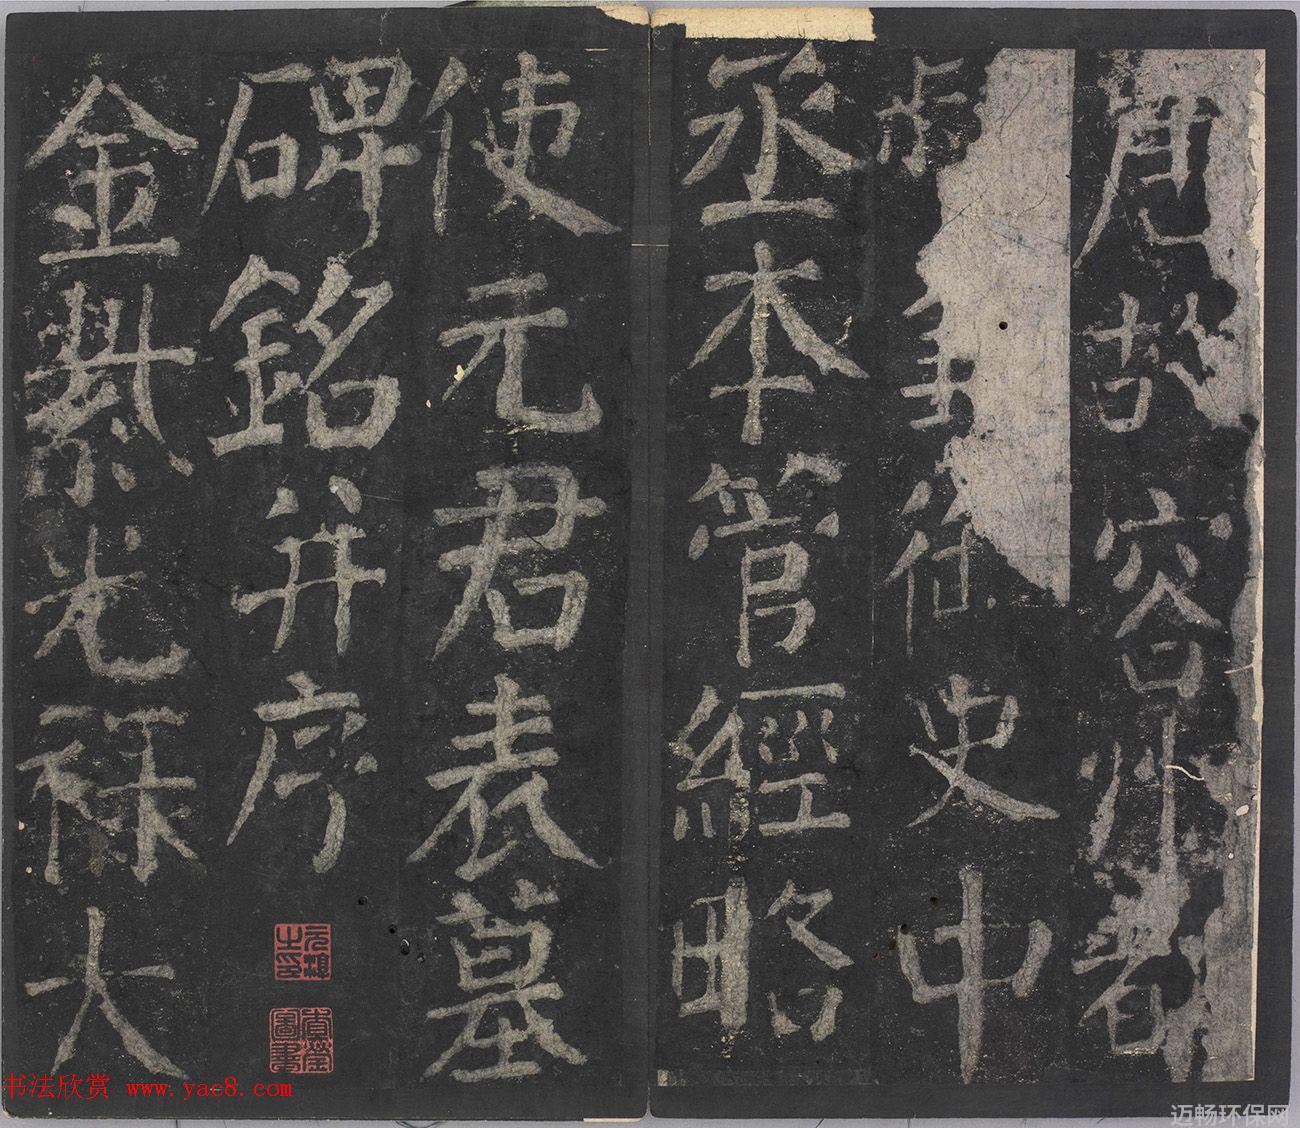 唐故容州都
督兼御史中
丞本管經略
使元君表墓
碑銘并序
金紫光祿大
书法欣赏 www.yac8.com
迈畅环保网